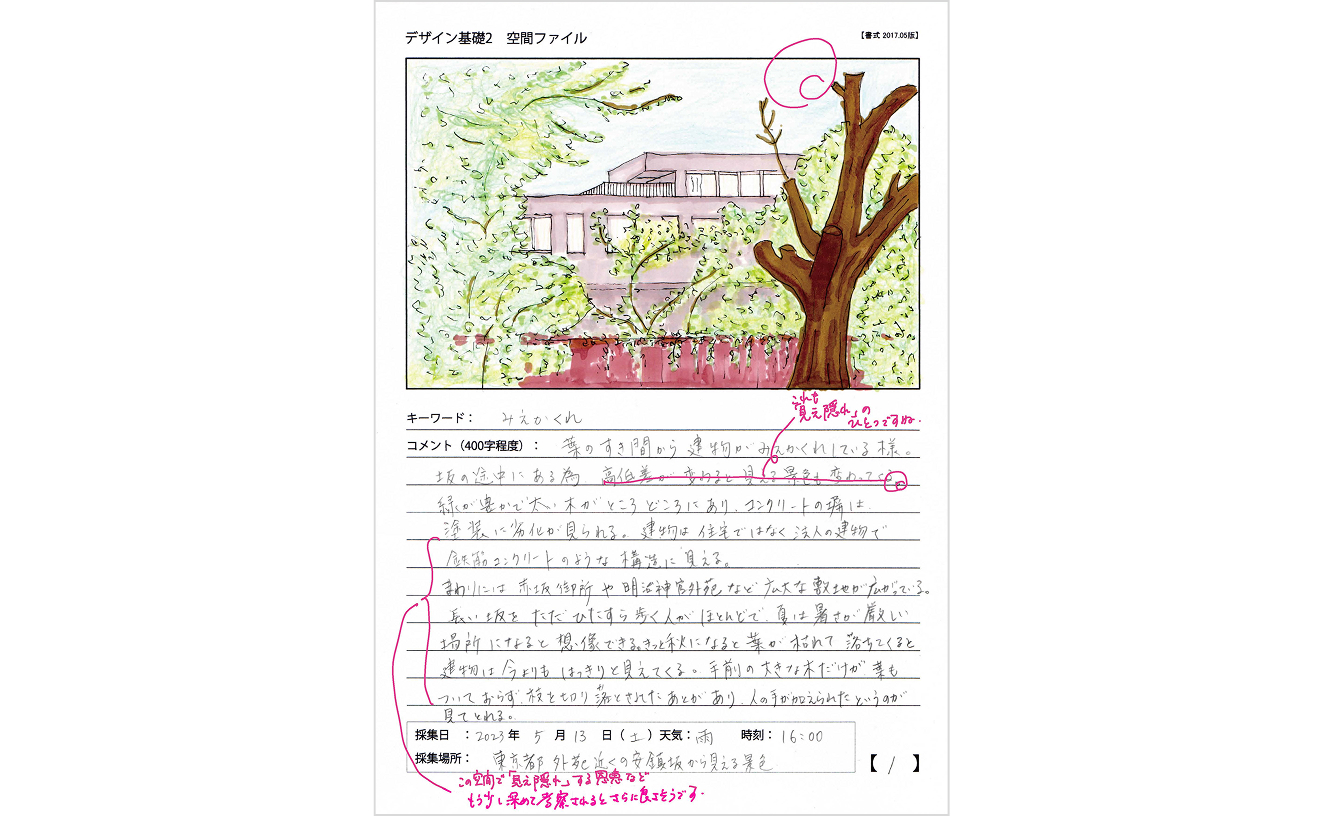 デザイン基礎2　空間ファイル
【書式 2017.05版】
キーワード： みえかくれ
これも
「見え隠れ」の
ひとつですね。
コメント（400字程度）： 葉のすき間から建物がみえかくれしている様。
坂の途中にある為 高低差が変わると見える景色も変わってくる。
緑が豊かで太い木がところどころにあり、コンクリートの塀は
塗装に劣化が見られる。建物は住宅ではなく法人の建物で
鉄筋コンクリートのような構造に見える。
まわりには赤坂御所や明治神宮外苑など広大な敷地が広がっている。
長い坂をただひたすら歩く人がほとんどで、夏は暑さが厳しい
場所になると想像できる。きっと秋になると葉が枯れて落ちてくると
建物は今よりもはっきりと見えてくる。手前の大きな木だけが、葉も
ついておらず、枝を切り落とされたあとがあり、人の手が加えられたというのが
見てとれる。
採集日　：2023年　5月 13日（土）天気：雨　時刻：16:00
採集場所： 東京都 外苑近くの安鎮坂から見える景色
【 / 】
この空間で「見え隠れ」する恩恵など
もう少し深めて考察されるとさらに良さそうです。